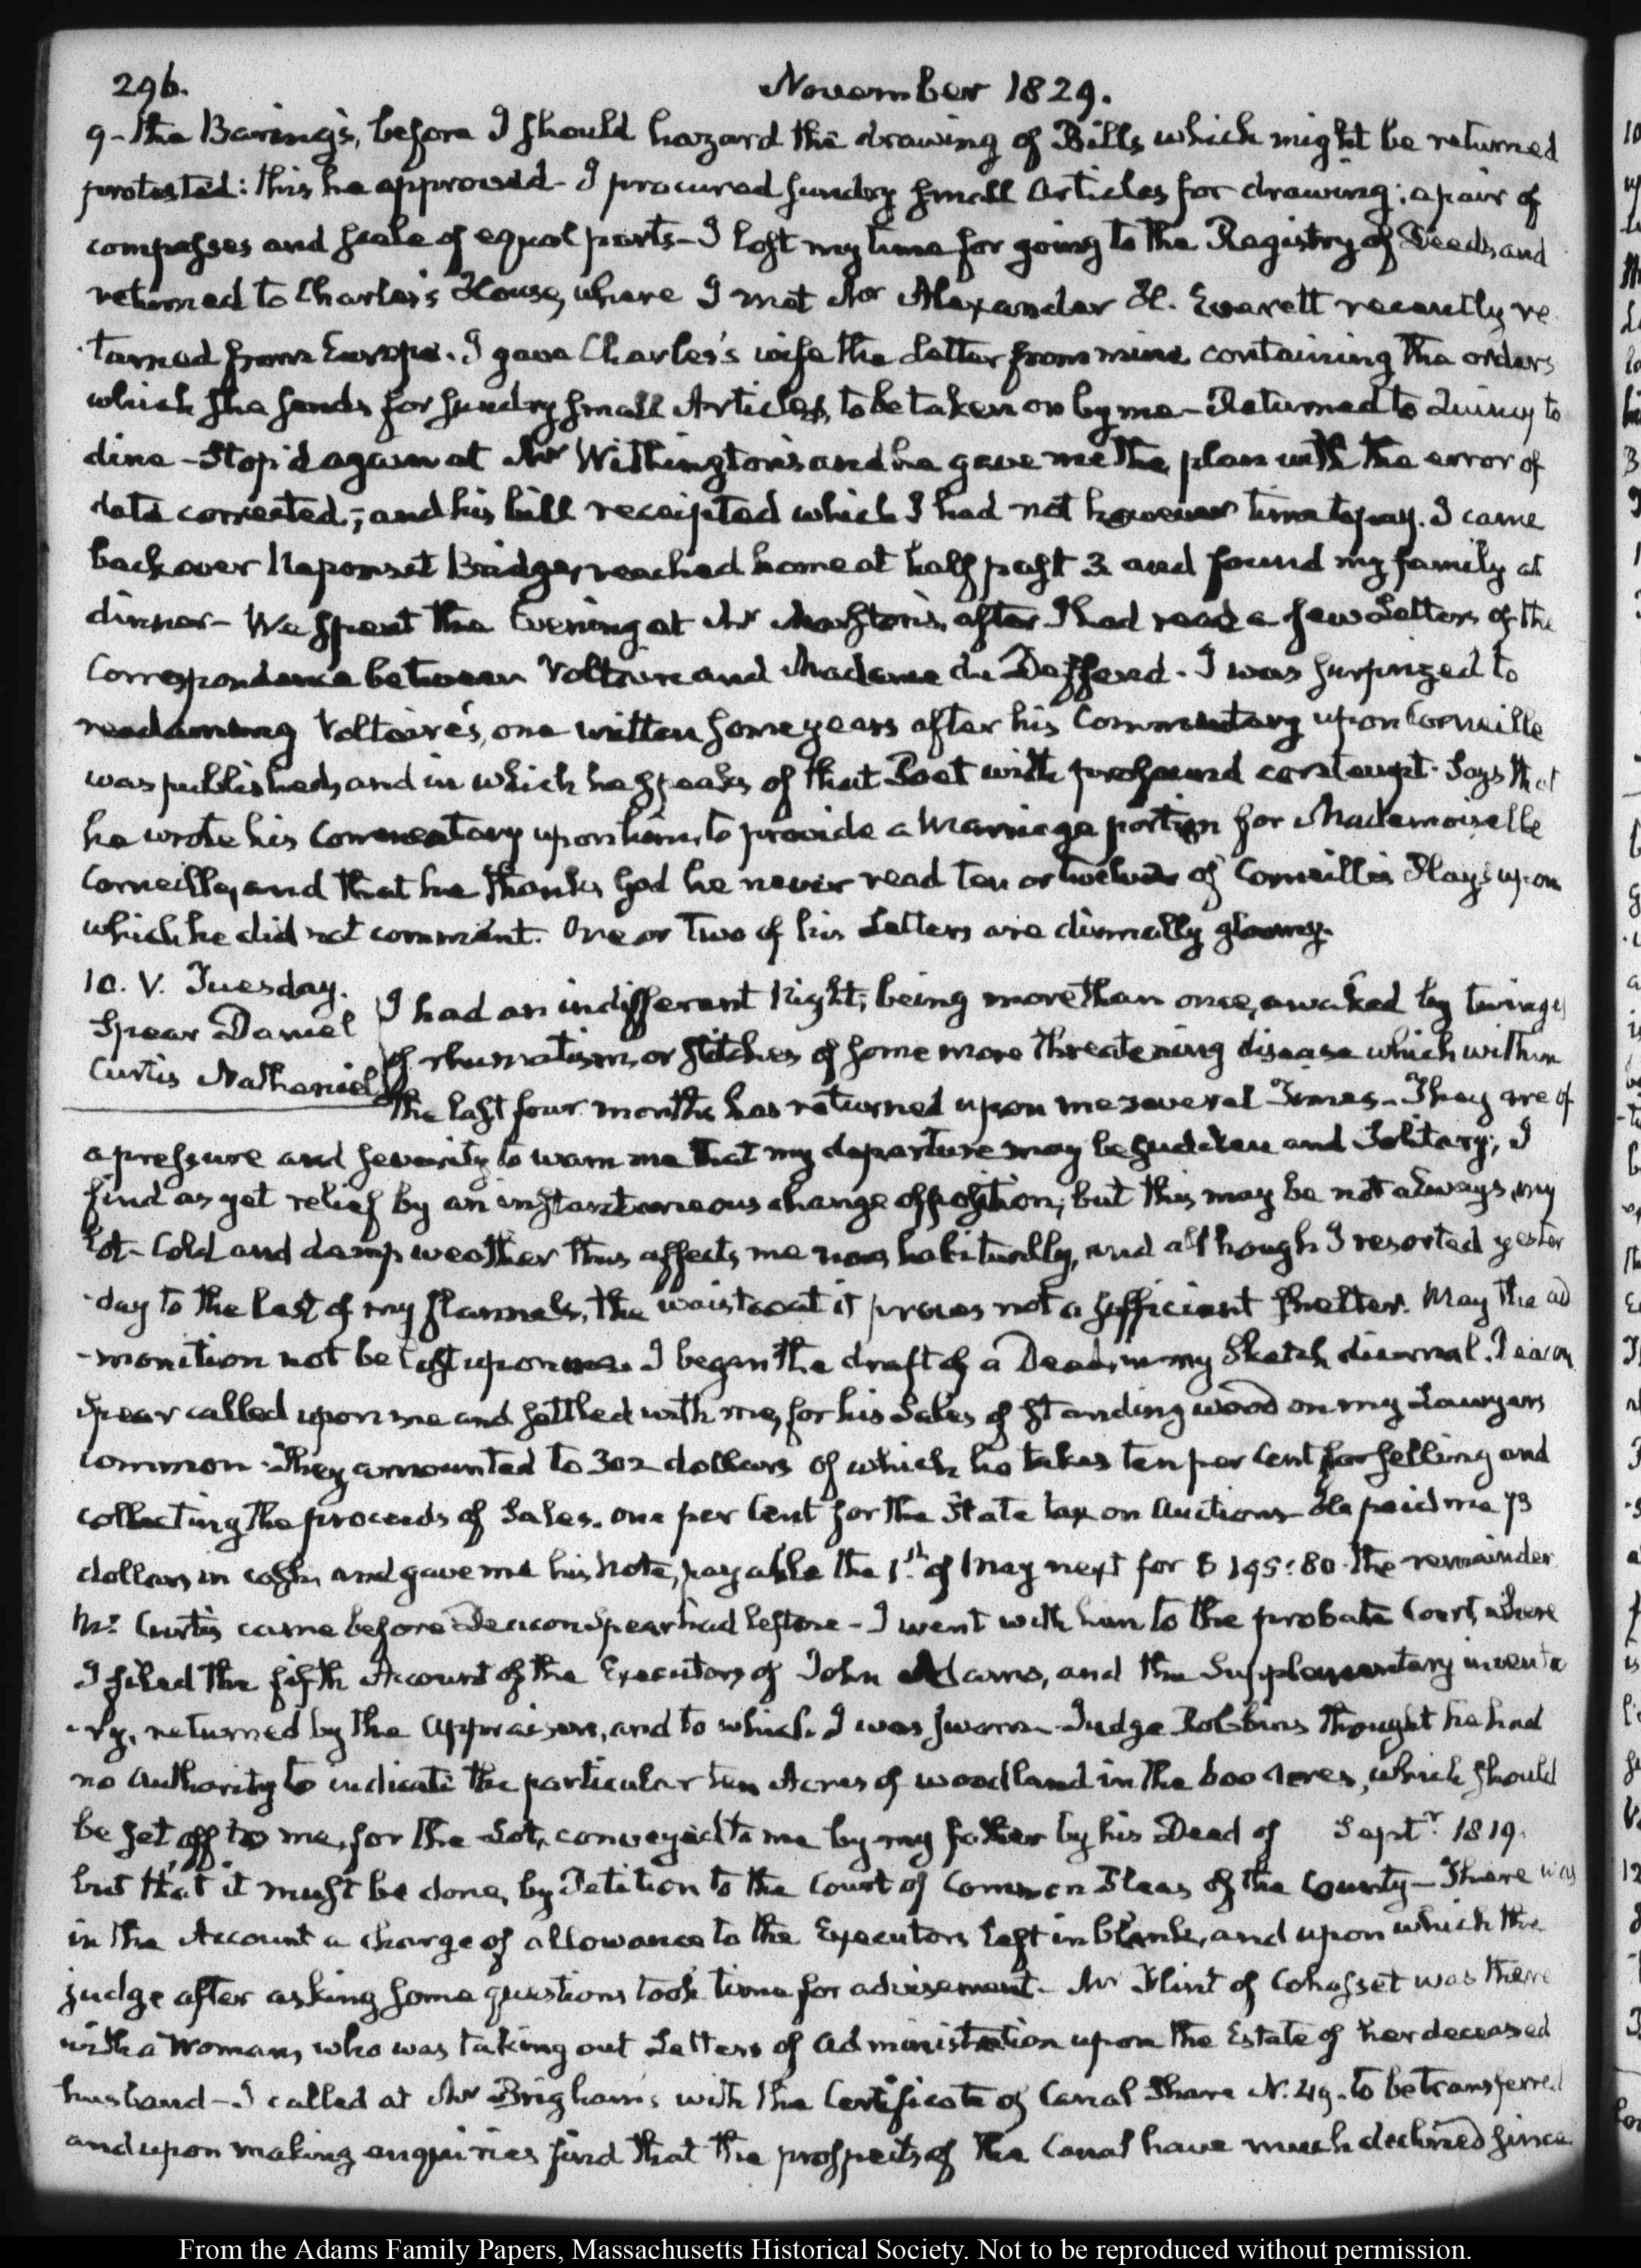 296.
November 1829.
9 - the Baring's, before I should hazard the drawing of Bills which might be returned
protested: this he approved - I procured sundry small Articles for drawing; a pair of
compasses and scale of equal parts - I lost my time for going to the Registry of Deeds, and
returned to Charles's House, where I met Mr Alexander H. Everett recently re
-turned from Europe. I gave Charles's wife the Letter from mine containing the orders
which she sends for sundry small Articles, to be taken on by me - Returned to Quincy to
dine - Stop'd again at Mr Withington's and he gave me the plan with the error of
date corrected; and his bill receipted which I had not however time to pay. I came
back over Neponset Bridge, reached home at half past 3 and found my family at
dinner - We spent the Evening at Mr Marston's, after I had read a few Letters of the
Correspondence between Voltaire and Madame du Deffand. I was surprized to
read among Voltaire's, one written some years after his Commentary upon Corneille
was published, and in which he speaks of that Poet with profound contempt. Says that
he wrote his Commentary upon him, to provide a Marriage portion for Mademoiselle
Corneille, and that he thanks God he never read ten or twelve of Corneille's Plays upon
which he did not comment. One or two of his Letters are dismally gloomy.
10. V. Tuesday.
Spear Daniel
Curtis Nathaniel
I had an indifferent Night; being more than once, awaked by twinges
of rhumatism, or stitches of some more threatening disease which within
the last four months has returned upon me several Times - They are of
a pressure and severity to warn me that my departure may be sudden and Solitary; I
find as yet relief by an instantaneous change of position; but this may be not always my
lot - Cold and damp weather thus affects me now habitually, and although I resorted yester
-day to the last of my flannels, the waistcoat it proves not a sufficient shelter. May the ad
-monition not be lost upon me. I began the draft of a Deed, in my Sketch diurnal. Deacon
Spear called upon me and settled with me, for his Sales of standing wood on my Lawyers
common. They amounted to 302 dollars of which he takes ten per Cent for selling and
collecting the proceeds of Sales. one per Cent for the State tax on Auctions He paid me 73
dollars in cash, and gave me his Note, payable the 1st of May next for $ 195:80 the remainder
Mr Curtis came before Deacon Spear had left me - I went with him to the probate Court, where
I filed the fifth Account of the Executors of John Adams, and the Supplementary invento
-ry, returned by the Appraisers, and to which I was sworn - Judge Robbins thought he had
no authority to indicate the particular ten Acres of woodland in the 600 Acres, which should
be set off to me, for the Lot, conveyed to me by my father by his Deed of Septr 1819.
but that it must be done, by Petition to the Court of Common Pleas of the County - There was
in the Account a charge of allowance to the Executors left in blank, and upon which the
judge after asking some questions took time for advisement. Mr Flint of Cohasset was there
with a Woman, who was taking out Letters of administration upon the Estate of her deceased
husband - I called at Mr Brigham's with the Certificate of Canal Share N. 49. to be transferred
and upon making enquiries find that the prospects of the Canal have much declined since
From the Adams Family Papers, Massachusetts Historical Society. Not to be reproduced without permission.